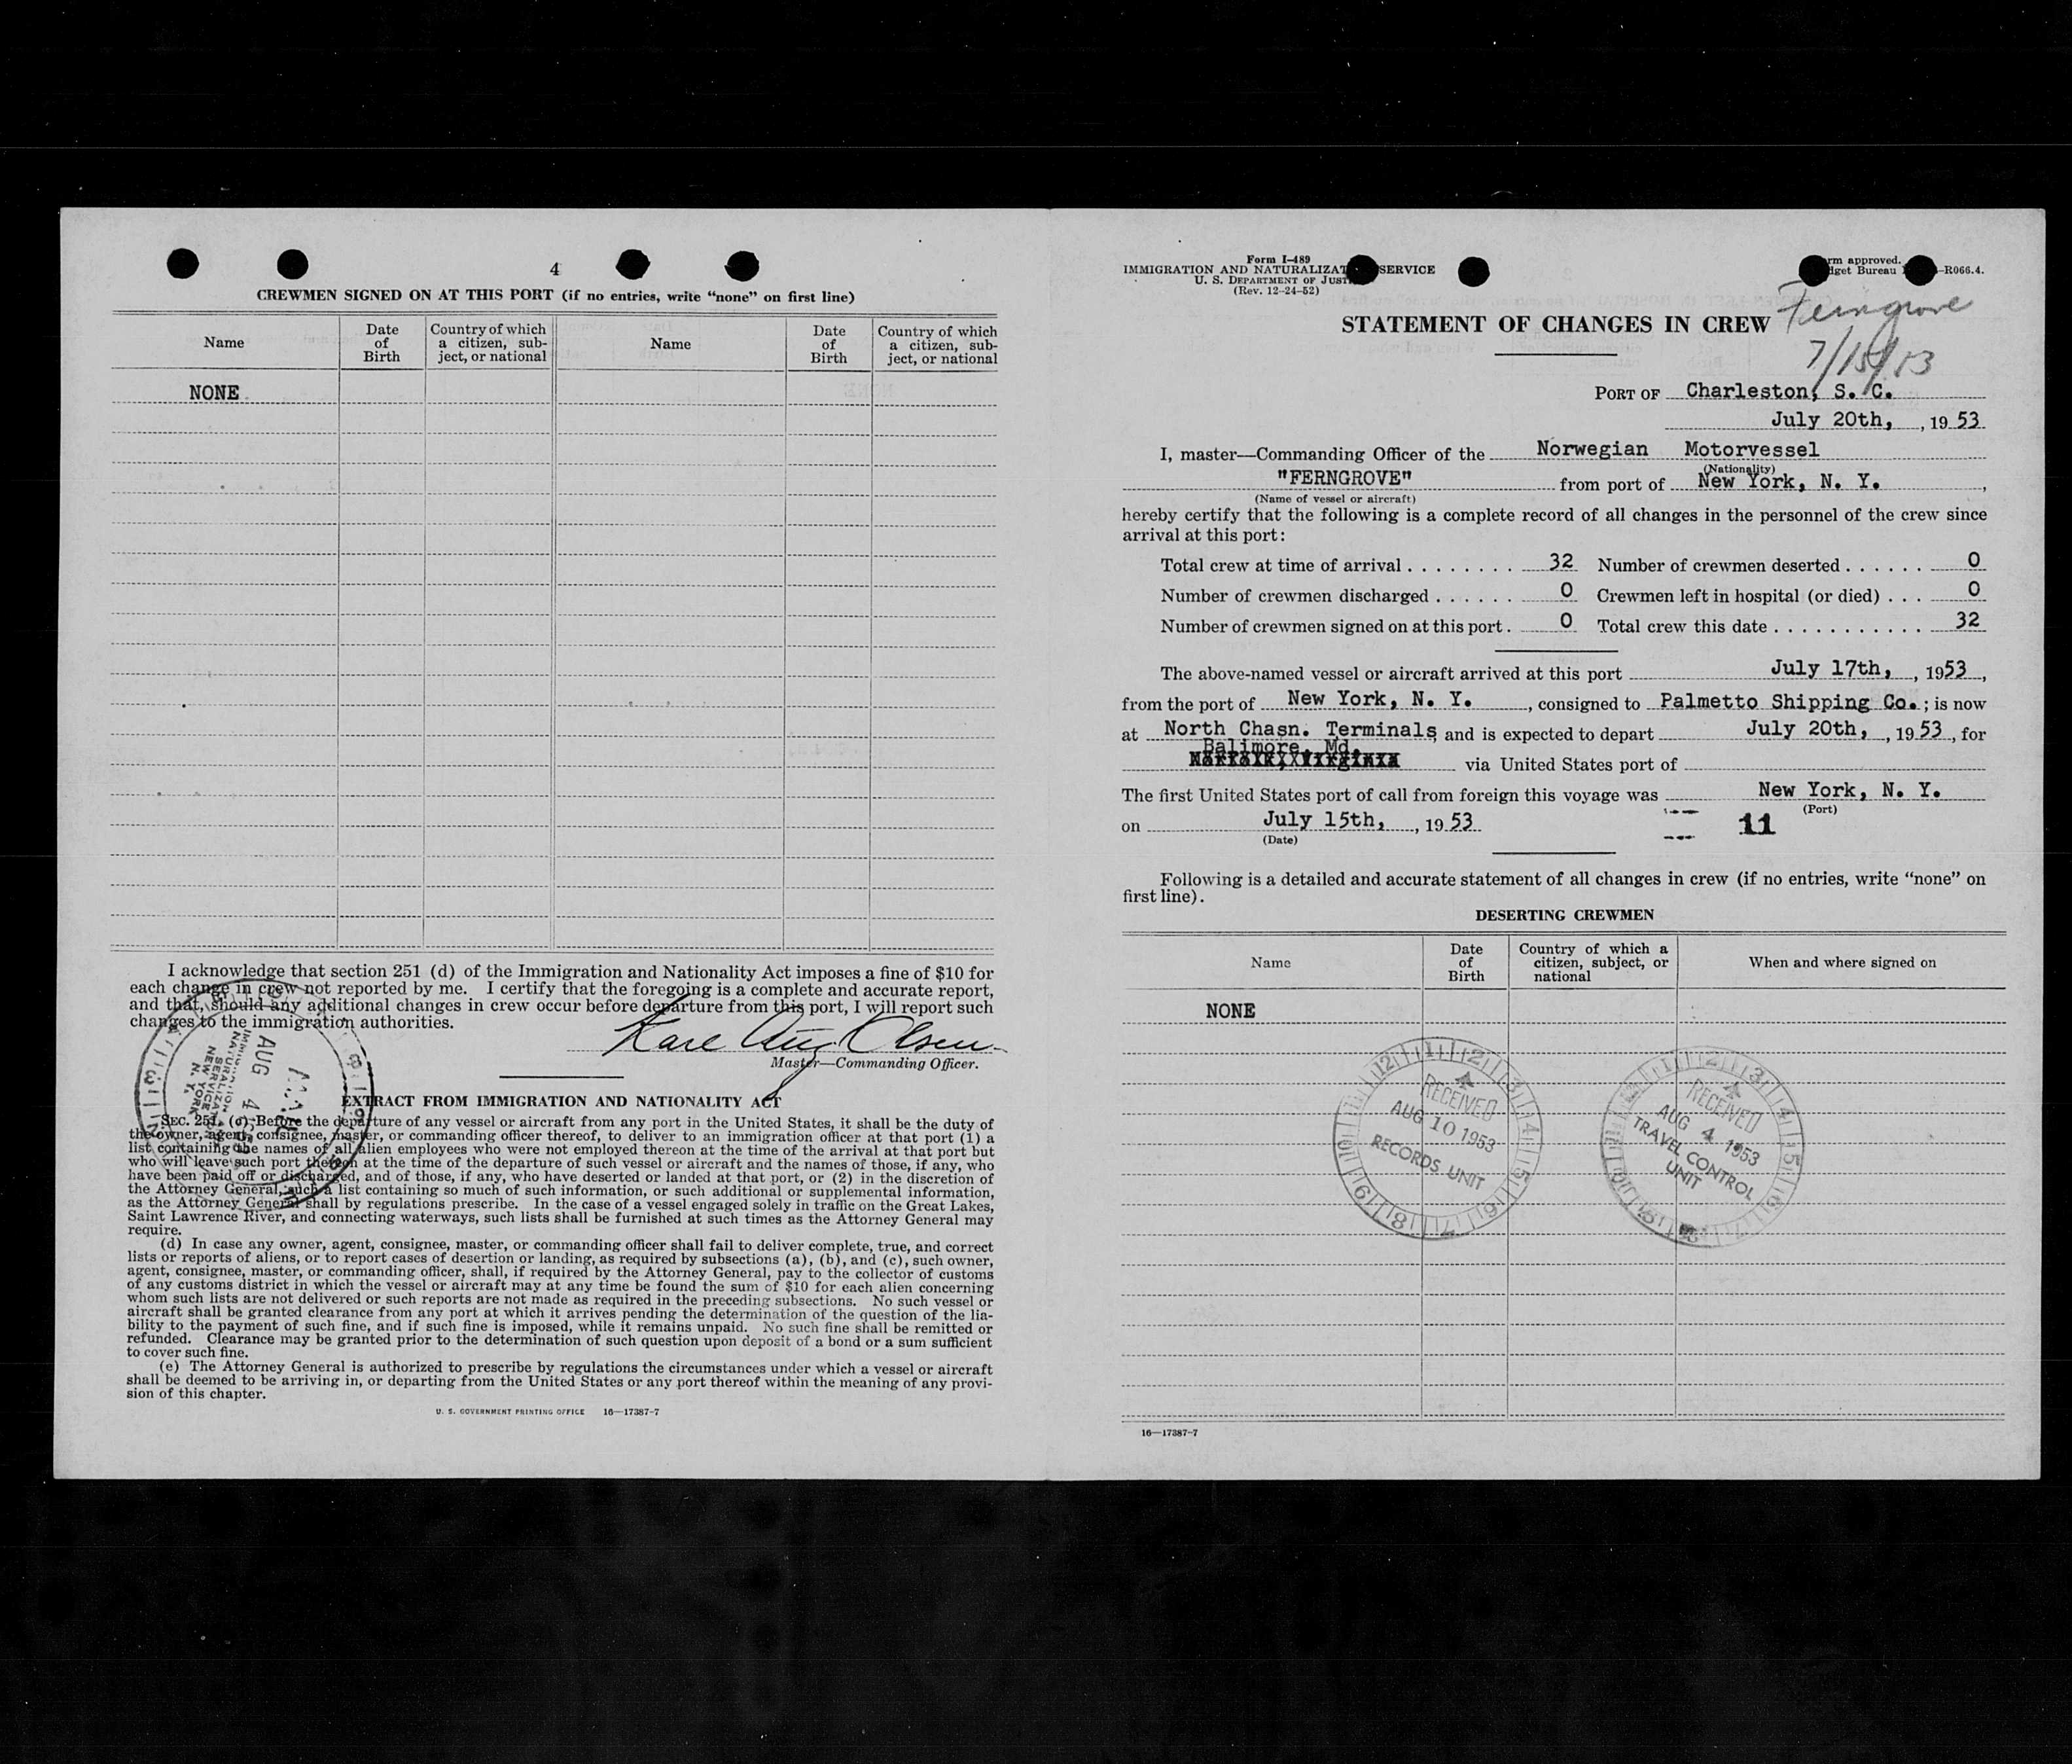 4
CREWMEN SIGNED ON AT THIS PORT (if no entries, write “none” on first line)
Name
Date of Birth
Country of which a citizen, sub-ject, or national
Name
Date of Birth
Country of which a citizen, sub-ject, or national
NONE
I acknowledge that section 251 (d) of the Immigration and Nationality Act imposes a fine of $10 for
each change in crew not reported by me. I certify that the foregoing is a complete and accurate report,
and that, should any additional changes in crew occur before departure from this port, I will report such
changes to the immigration authorities.
Kare Aug Olsen
Master—Commanding Officer.
EXTRACT FROM IMMIGRATION AND NATIONALITY ACT
SEC. 251. (c) Before the departure of any vessel or aircraft from any port in the United States, it shall be the duty of
the owner, agent, consignee, master, or commanding officer thereof, to deliver to an immigration officer at that port (1) a
list containing the names of all alien employees who were not employed thereon at the time of the arrival at that port but
who will leave such port thereon at the time of the departure of such vessel or aircraft and the names of those, if any, who
have been paid off or discharged, and of those, if any, who have deserted or landed at that port, or (2) in the discretion of
the Attorney General, such a list containing so much of such information, or such additional or supplemental information,
as the Attorney General shall by regulations prescribe. In the case of a vessel engaged solely in traffic on the Great Lakes,
Saint Lawrence River, and connecting waterways, such lists shall be furnished at such times as the Attorney General may
require.
(d) In case any owner, agent, consignee, master, or commanding officer shall fail to deliver complete, true, and correct
lists or reports of aliens, or to report cases of desertion or landing, as required by subsections (a), (b), and (c), such owner,
agent, consignee, master, or commanding officer, shall, if required by the Attorney General, pay to the collector of customs
of any customs district in which the vessel or aircraft may at any time be found the sum of $10 for each alien concerning
whom such lists are not delivered or such reports are not made as required in the preceding subsections. No such vessel or
aircraft shall be granted clearance from any port at which it arrives pending the determination of the question of the lia-
bility to the payment of such fine, and if such fine is imposed, while it remains unpaid. No such fine shall be remitted or
refunded. Clearance may be granted prior to the determination of such question upon deposit of a bond or a sum sufficient
to cover such fine.
(e) The Attorney General is authorized to prescribe by regulations the circumstances under which a vessel or aircraft
shall be deemed to be arriving in, or departing from the United States or any port thereof within the meaning of any provi-
sion of this chapter.
U. S. GOVERNMENT PRINTING OFFICE 16—17387-7
AUG 4
NEW YORK
N. Y.
Form I-489
IMMIGRATION AND NATURALIZAT SERVICE
U. S. DEPARTMENT OF JUST
(Rev. 12-24-52)
rm approved.
dget Bureau -R066.4.
STATEMENT OF CHANGES IN CREW
Ferngrove
7/15/53
PORT OF Charleston, S. C.
July 20th, , 19 53
I, master—Commanding Officer of the Norwegian Motorvessel
(Nationality)
"FERNGROVE" from port of New York, N. Y. ,
(Name of vessel or aircraft)
hereby certify that the following is a complete record of all changes in the personnel of the crew since
arrival at this port:
Total crew at time of arrival . . . . . . . . 32 Number of crewmen deserted . . . . . . 0
Number of crewmen discharged . . . . . . 0 Crewmen left in hospital (or died) . . . 0
Number of crewmen signed on at this port . 0 Total crew this date . . . . . . . . . . . 32
The above-named vessel or aircraft arrived at this port July 17th, , 1953 ,
from the port of New York, N. Y. , consigned to Palmetto Shipping Co. ; is now
at North Chasn. Terminals, and is expected to depart July 20th, , 19 53 , for
Balimore, Md.
via United States port of
The first United States port of call from foreign this voyage was New York, N. Y.
(Port)
on July 15th, , 19 53
(Date)
11
Following is a detailed and accurate statement of all changes in crew (if no entries, write “none” on
first line).
DESERTING CREWMEN
Name
Date of Birth
Country of which a citizen, subject, or national
When and where signed on
NONE
RECEIVED
AUG 10 1953
RECORDS UNIT
RECEIVED
AUG 4 1953
TRAVEL CONTROL
UNIT
16—17387-7